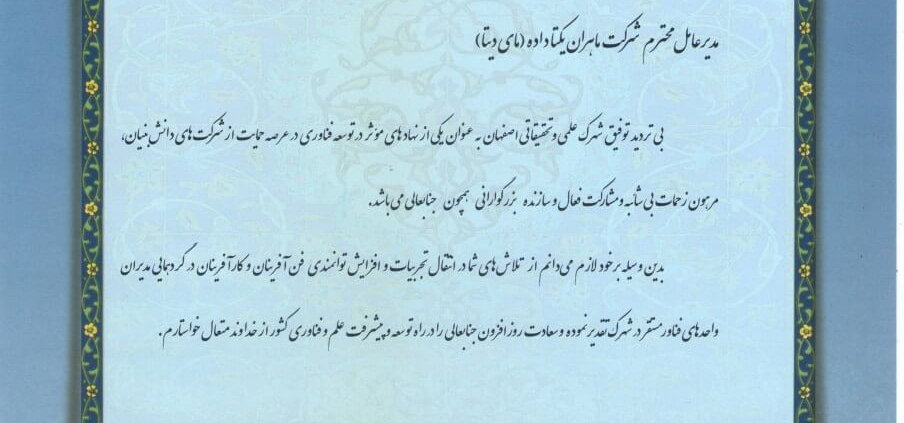 مدیرعامل محترم شرکت ماهران یکتا داده (مای دیتا)
بی تردید توفیق شهرک علمی و تحقیقاتی اصفهان به عنوان یکی از نهادهای مؤثر در توسعه فناوری در عرصه حمایت از شرکت‌های دانش بنیان،
مرهون زحمات بی شائبه و مشارکت فعال و سازنده بزرگوارانی همچون جنابعالی می‌باشد.
بدین وسیله برخود لازم می‌دانم از تلاش‌های شما در انتقال تجربیات و افزایش توانمندی فن‌آفرینان و کارآفرینان در گردهمایی مدیران
واحدهای فناور مستقر در شهرک تقدیر نموده و سعادت روزافزون جنابعالی را در راه توسعه و پیشرفت علم و فناوری کشور از خداوند متعال خواستارم.